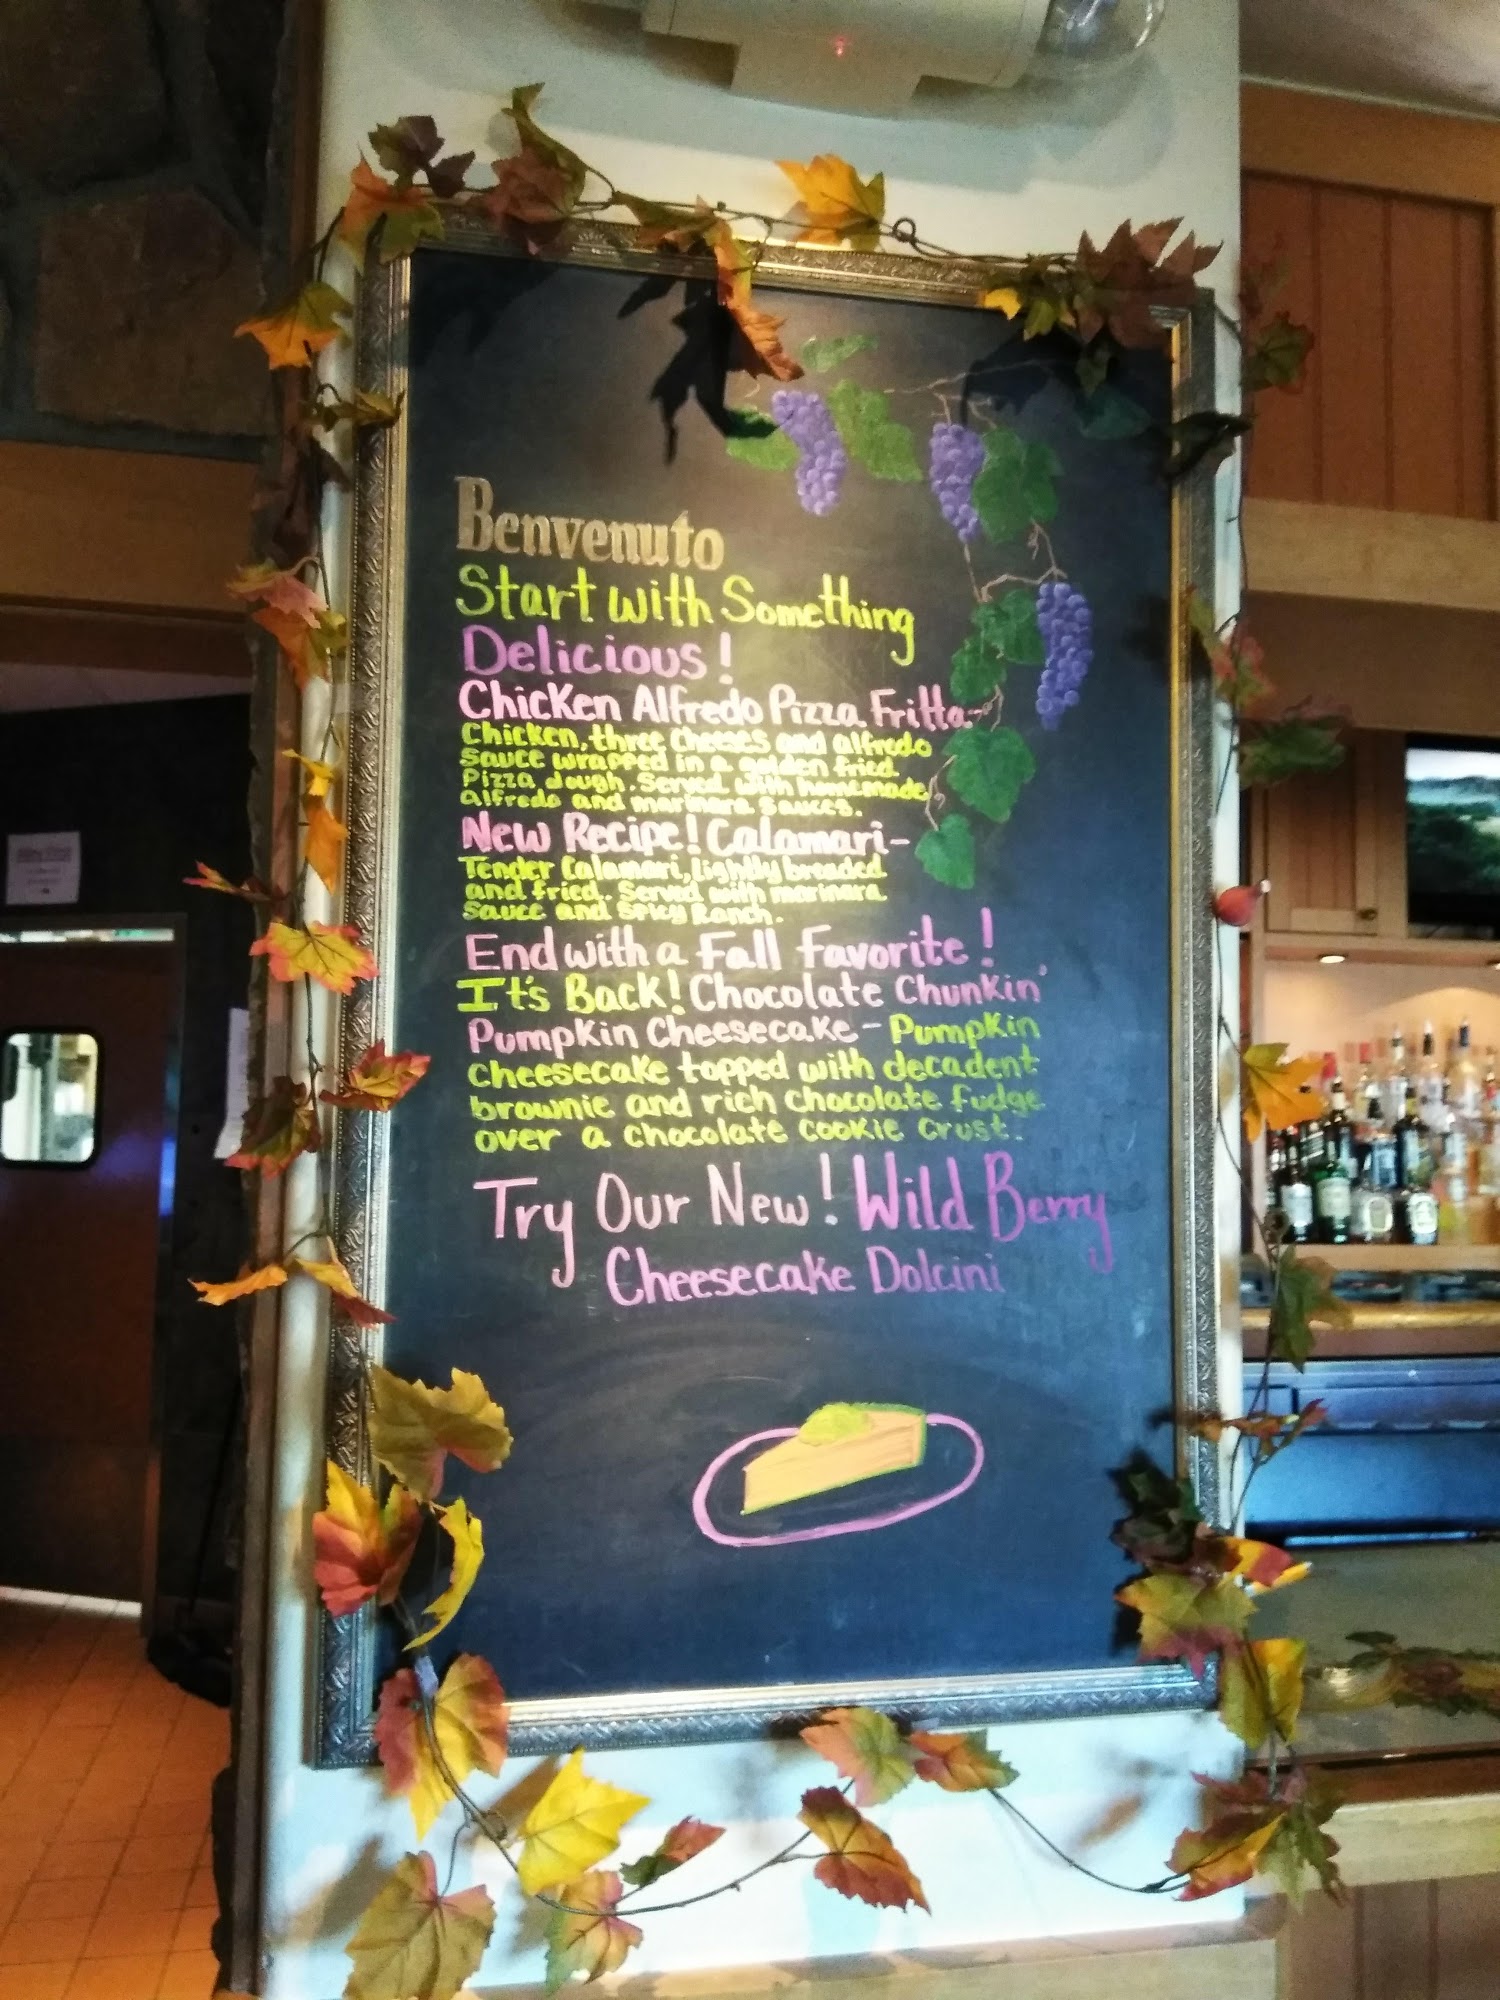 Benvenuto
Start with Something
Delicious!
Chicken Alfredo Pizza Fritta-
Chicken, three cheeses and alfredo
sauce wrapped in a golden fried
Pizza dough. Served with homemade
alfredo and marinara sauces.
New Recipe! Calamari-
Tender Calamari, lightly breaded
and fried. Served with marinara
sauce and Spicy Ranch.
End with a Fall Favorite!
It's Back! Chocolate Chunkin'
Pumpkin Cheesecake - Pumpkin
cheesecake topped with decadent
brownie and rich chocolate fudge
over a chocolate cookie crust.
Try Our New! Wild Berry
Cheesecake Dolcini